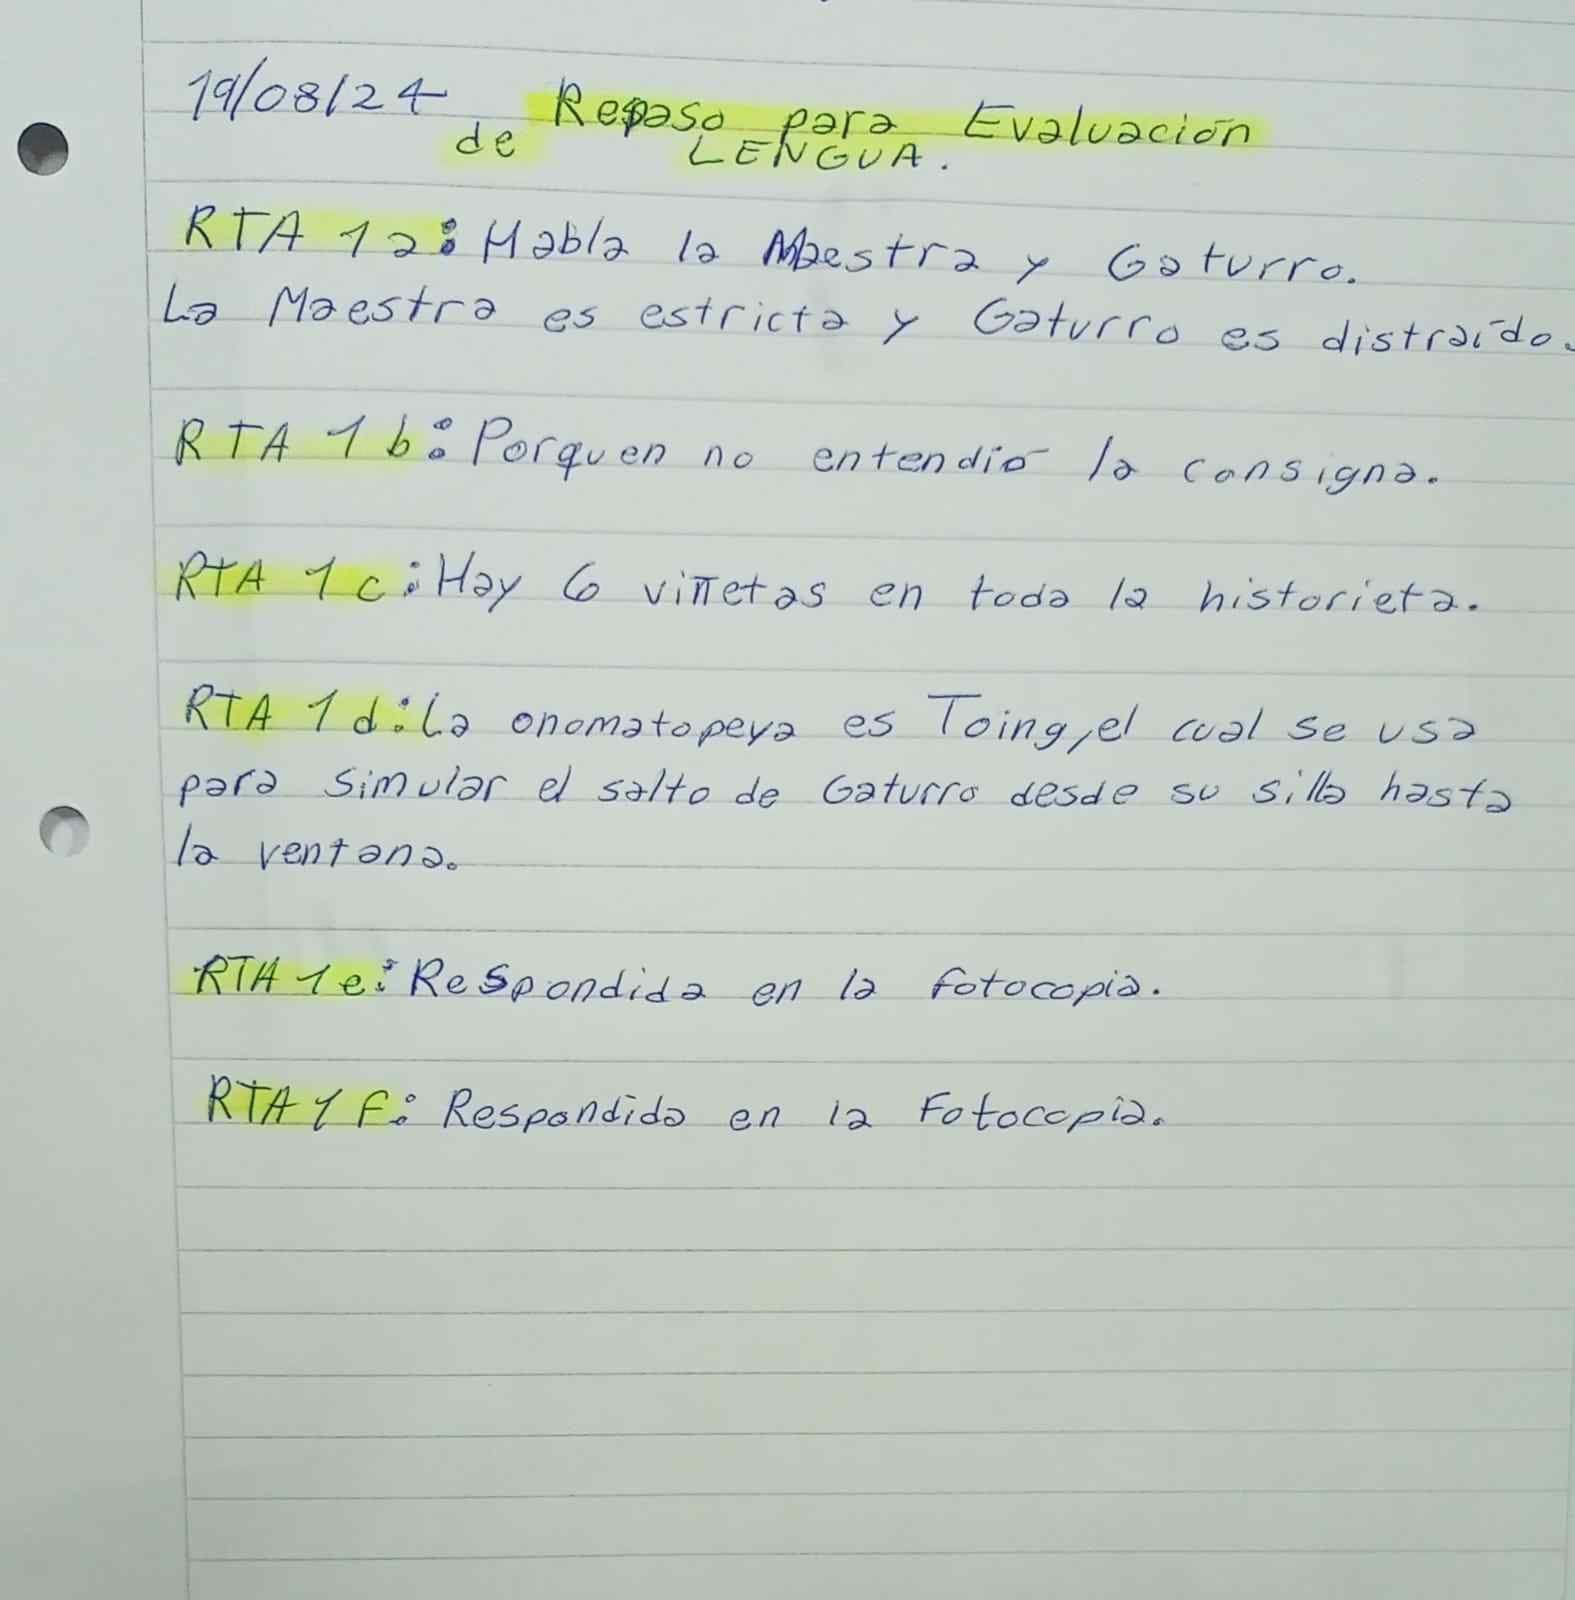 19/08/24 Repaso para Evaluación
de LENGUA.
RTA 1a: Habla la Maestra y Gaturro.
La Maestra es estricta y Gaturro es distraído.
RTA 1 b: Porquen no entendió la consigna.
RTA 1 c: Hay 6 viñetas en toda la historieta.
RTA 1 d: La onomatopeya es Toing, el cual se usa
para simular el salto de Gaturro desde su silla hasta
la ventana.
RTA 1e: Respondida en la fotocopia.
RTA 1 F: Respondida en la Fotocopia.